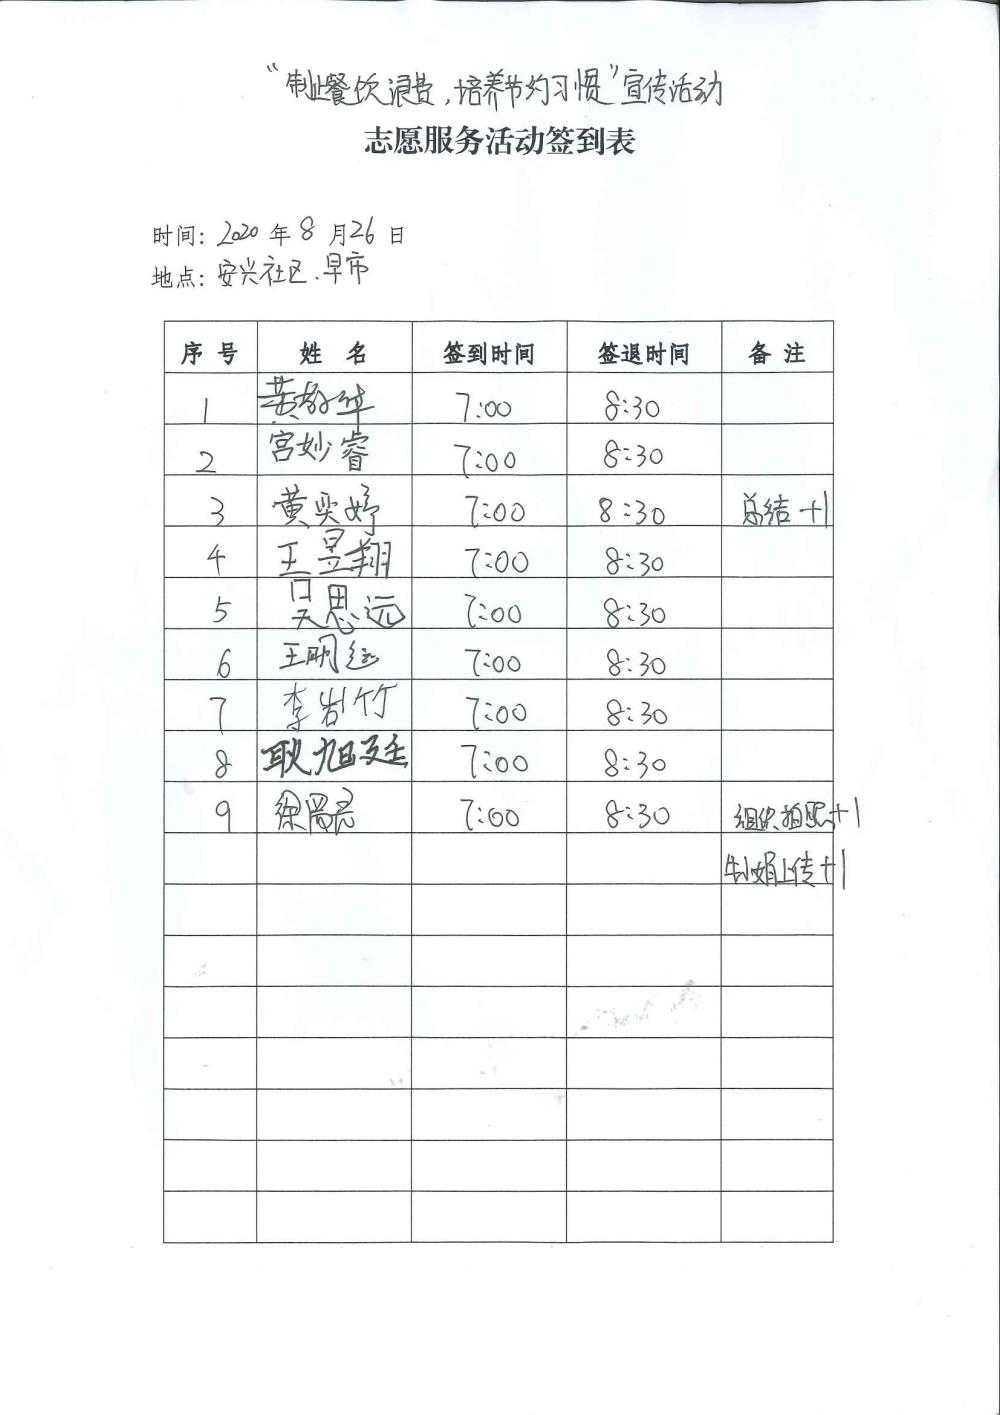 “制止餐饮浪费，培养节约习惯”宣传活动
志愿服务活动签到表
时间：2020年8月26日
地点：安兴社区.早市
序号 姓名 签到时间 签退时间 备注
1 黄敬华 7:00 8:30
2 宫妙睿 7:00 8:30
3 黄奕婷 7:00 8:30 总结+1
4 王昱翔 7:00 8:30
5 吴思远 7:00 8:30
6 王明远 7:00 8:30
7 李岩竹 7:00 8:30
8 耿旭廷 7:00 8:30
9 徐 7:00 8:30 组织拍照+1
上传+1